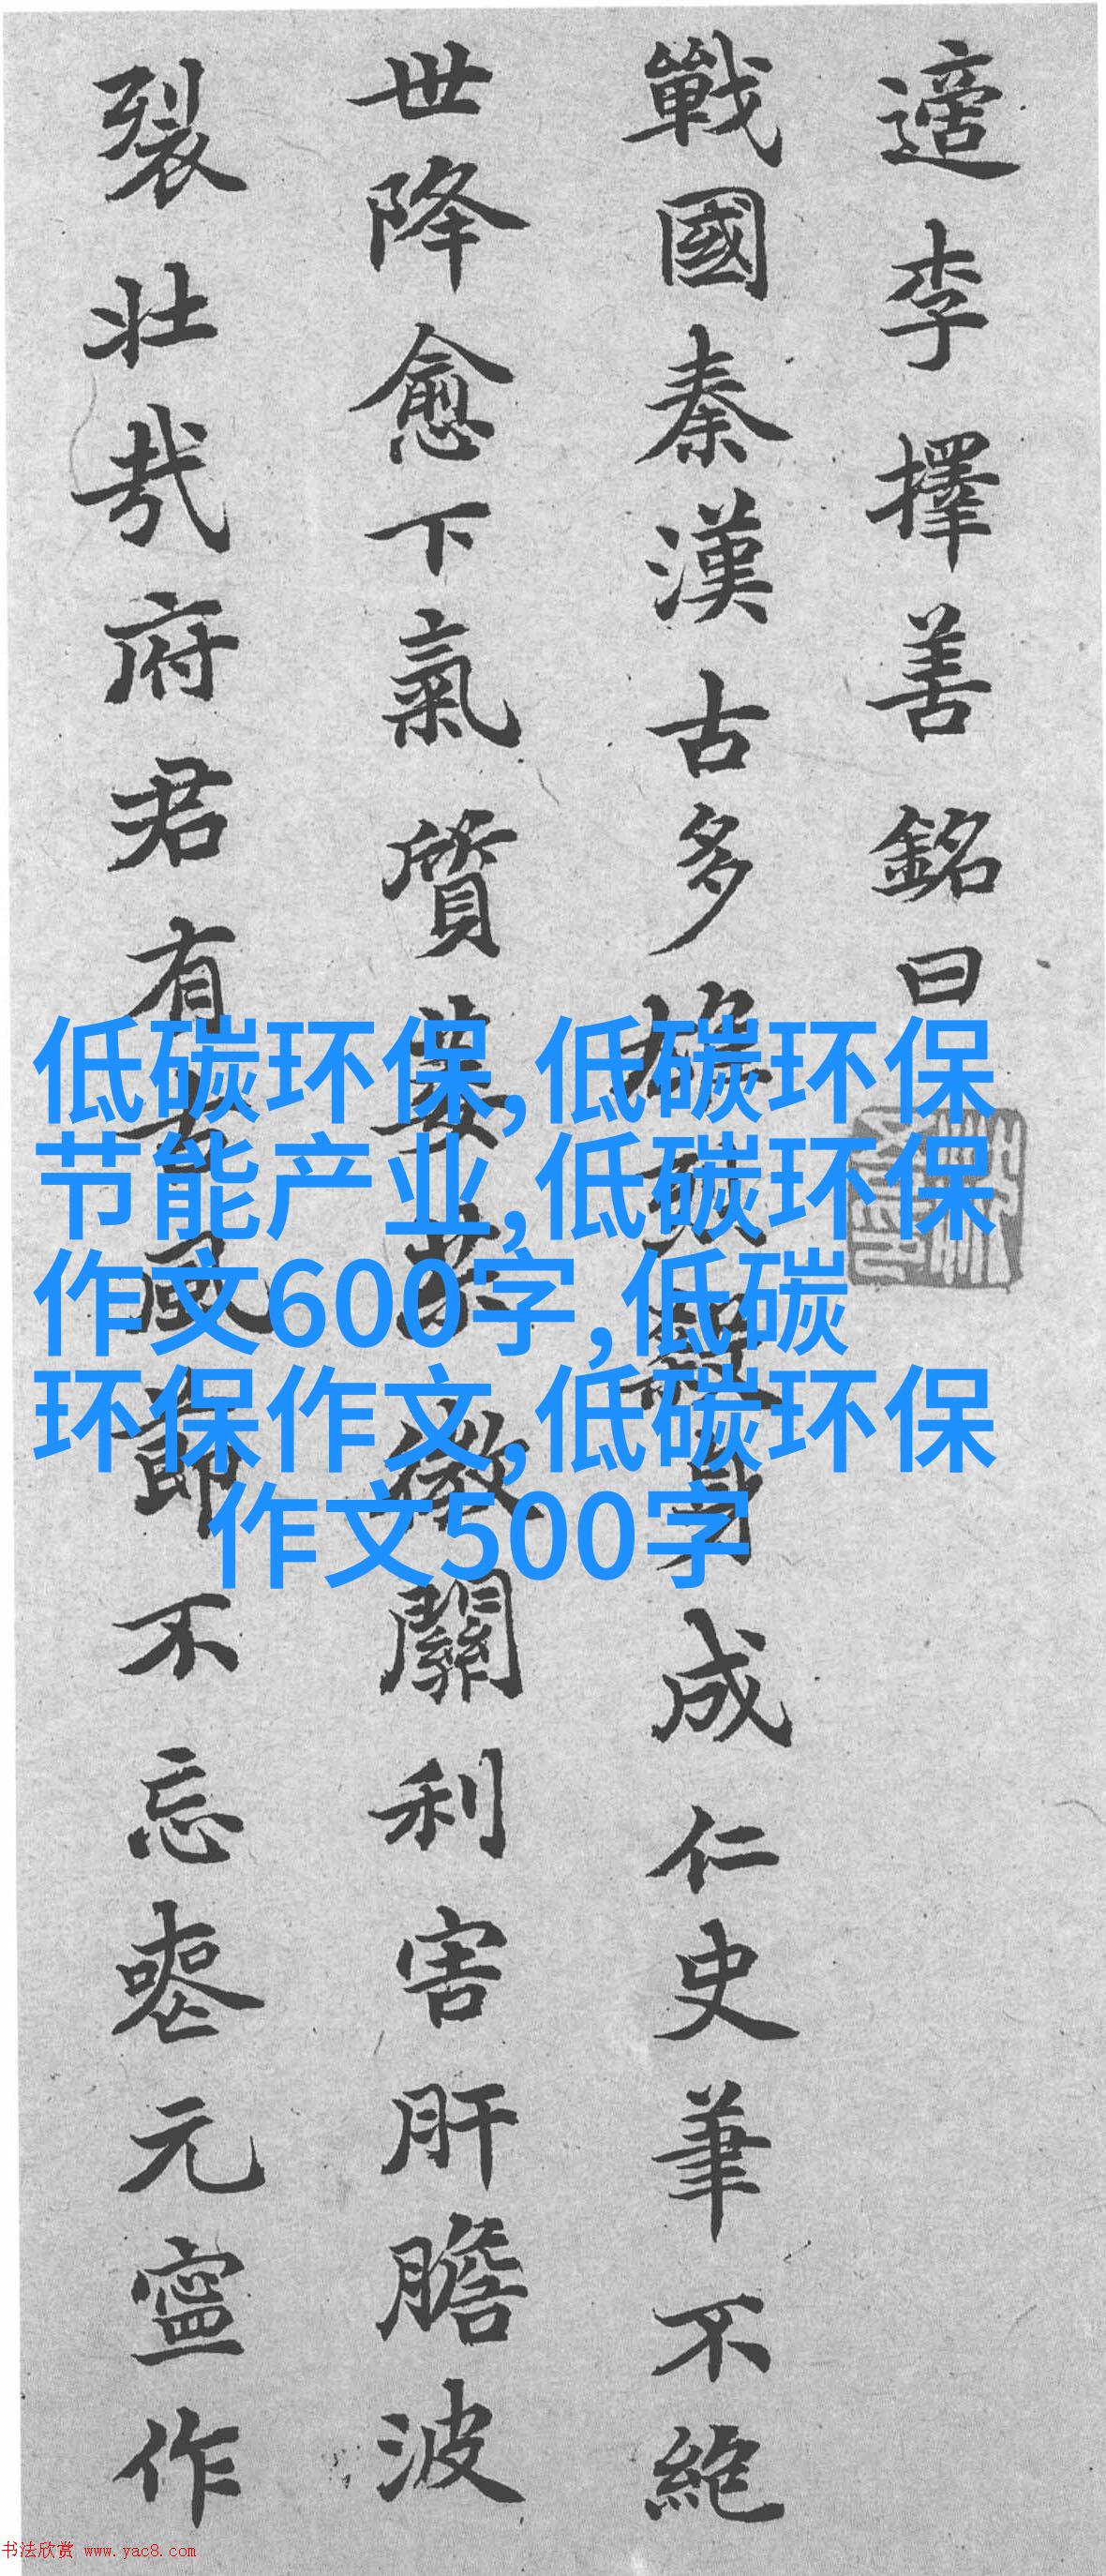 適李擇善銘曰
戰國秦漢古多成仁史筆不絶
世降愈下氣質關利害肝膽波
裂壯哉府君有風節不忘喪元寧作
低碳环保,低碳环保
节能产业,低碳环保
作文600字,低碳
环保作文,低碳环保
作文500字
书法欣赏 www.yac8.com